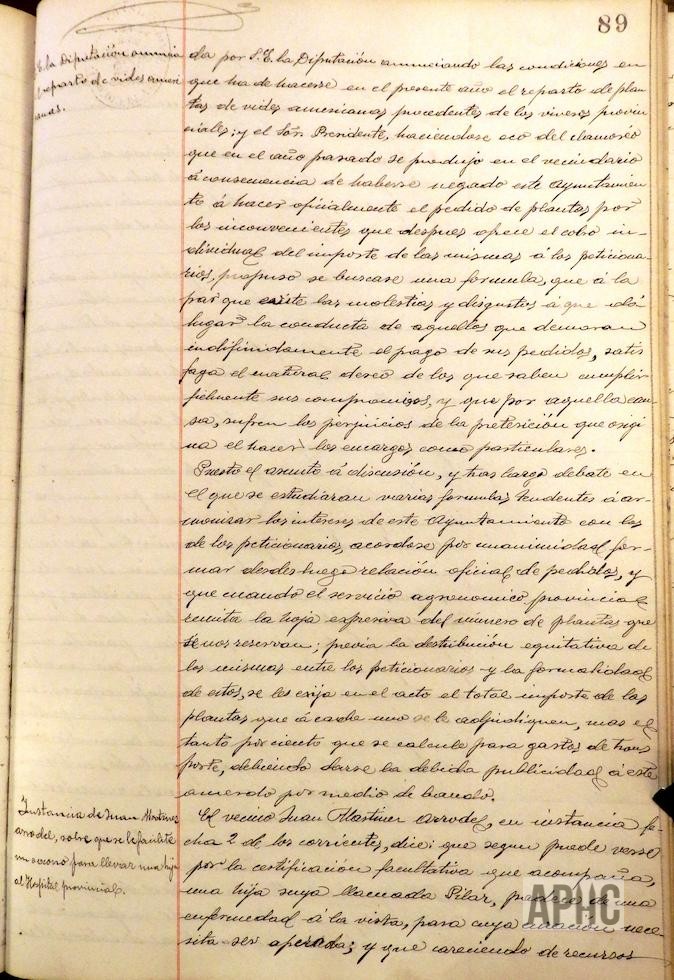 89
S.E. la Diputación anuncia
el reparto de vides ameri
canas.
da por S.E. la Diputación anunciando las condiciones en
que ha de hacerse en el presente año el reparto de plan
tas de vides americanas procedentes de los viveros provin
ciales; y el Sor. Presidente, haciendose eco del clamoreo
que en el año pasado se produjo en el vecindario
á consecuencia de haberse negado este Ayuntamien
to á hacer oficialmente el pedido de plantas por
los inconvenientes que despues ofrece el cobro in-
dividual del importe de las mismas á los peticiona-
rios, propuso se buscase una formula, que á la
par que evite las molestias y disgustos á que dá
lugar la conducta de aquellos que demoran
indifinidamente el pago de sus pedidos, satis
faga el natural deseo de los que saben cumplir
fielmente sus compromisos, y que por aquella cau
sa, sufren los perjuicios de la preterición que origi
na el hacer los encargos como particulares.
Puesto el asunto á discusión, y tras largo debate en
el que se estudiaran varias formulas tendentes á ar-
monizar los intereses de este Ayuntamiento con los
de los peticionarios, acordose por unanimidad for-
mar desde luego relación oficial de pedidos, y
que cuando el servicio agronomico provincial
remita la hoja expresiva del número de plantas que
se nos reservan; previa la distribución equitativa de
las mismas entre los peticionarios y la formalidad
de estos, se les exija en el acto el total importe de las
plantas que á cada uno se le adjudiquen, mas el
tanto por ciento que se calcule para gastos de trans
porte, debiendo darse la debida publicidad á este
acuerdo por medio de bando.
Instancia de Juan Martinez
Arrodel, sobre que se le facilite
un socorro para llevar una hija
al Hospital provincial.
El vecino Juan Martinez Arrodel, en instancia fe
cha 2 de los corrientes, dice: que segun puede verse
por la certificación facultativa que acompaña,
una hija suya llamada Pilar, padece de una
enfermedad á la vista, para cuya curación nece-
sita ser operada; y que careciendo de recursos
APHC